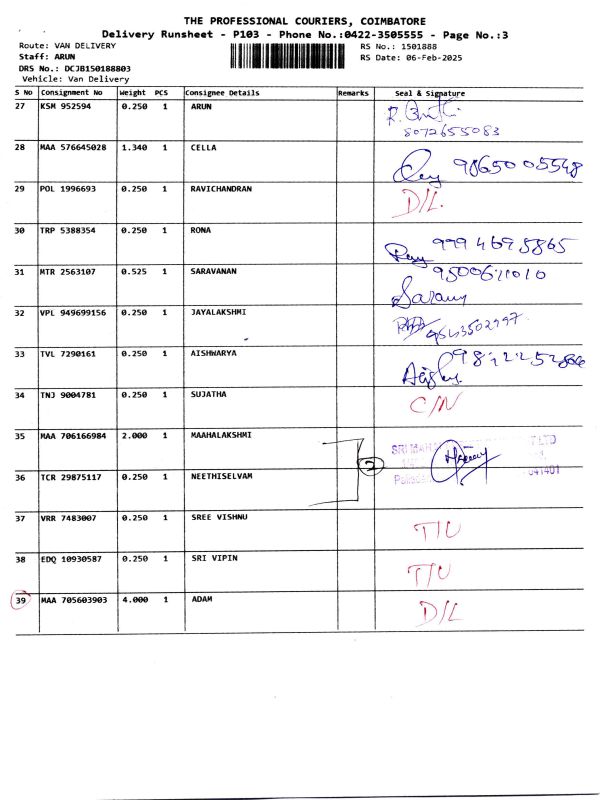 THE PROFESSIONAL COURIERS, COIMBATORE
Delivery Runsheet - P103 - Phone No.:0422-3505555 - Page No.:3
Route: VAN DELIVERY RS No.: 1501888
Staff: ARUN RS Date: 06-Feb-2025
DRS No.: DCJB150188803
Vehicle: Van Delivery
S No Consignment No Weight PCS Consignee Details Remarks Seal & Signature
27 KSM 952594 0.250 1 ARUN
8072655083
28 MAA 576645028 1.340 1 CELLA 9865005548
29 POL 1996693 0.250 1 RAVICHANDRAN D/L.
30 TRP 5388354 0.250 1 RONA 9994695865
31 MTR 2563107 0.525 1 SARAVANAN
Saravy
32 VPL 949699156 0.250 1 JAYALAKSHMI
33 TVL 7290161 0.250 1 AISHWARYA
34 TNJ 9004781 0.250 1 SUJATHA C/N
35 MAA 706166984 2.000 1 MAAHALAKSHMI SRI MAHA LTD
2
641401
36 TCR 29875117 0.250 1 NEETHISELVAM
37 VRR 7483007 0.250 1 SREE VISHNU T/U
38 EDQ 10930587 0.250 1 SRI VIPIN T/U
39 MAA 705603903 4.000 1 ADAM D/L